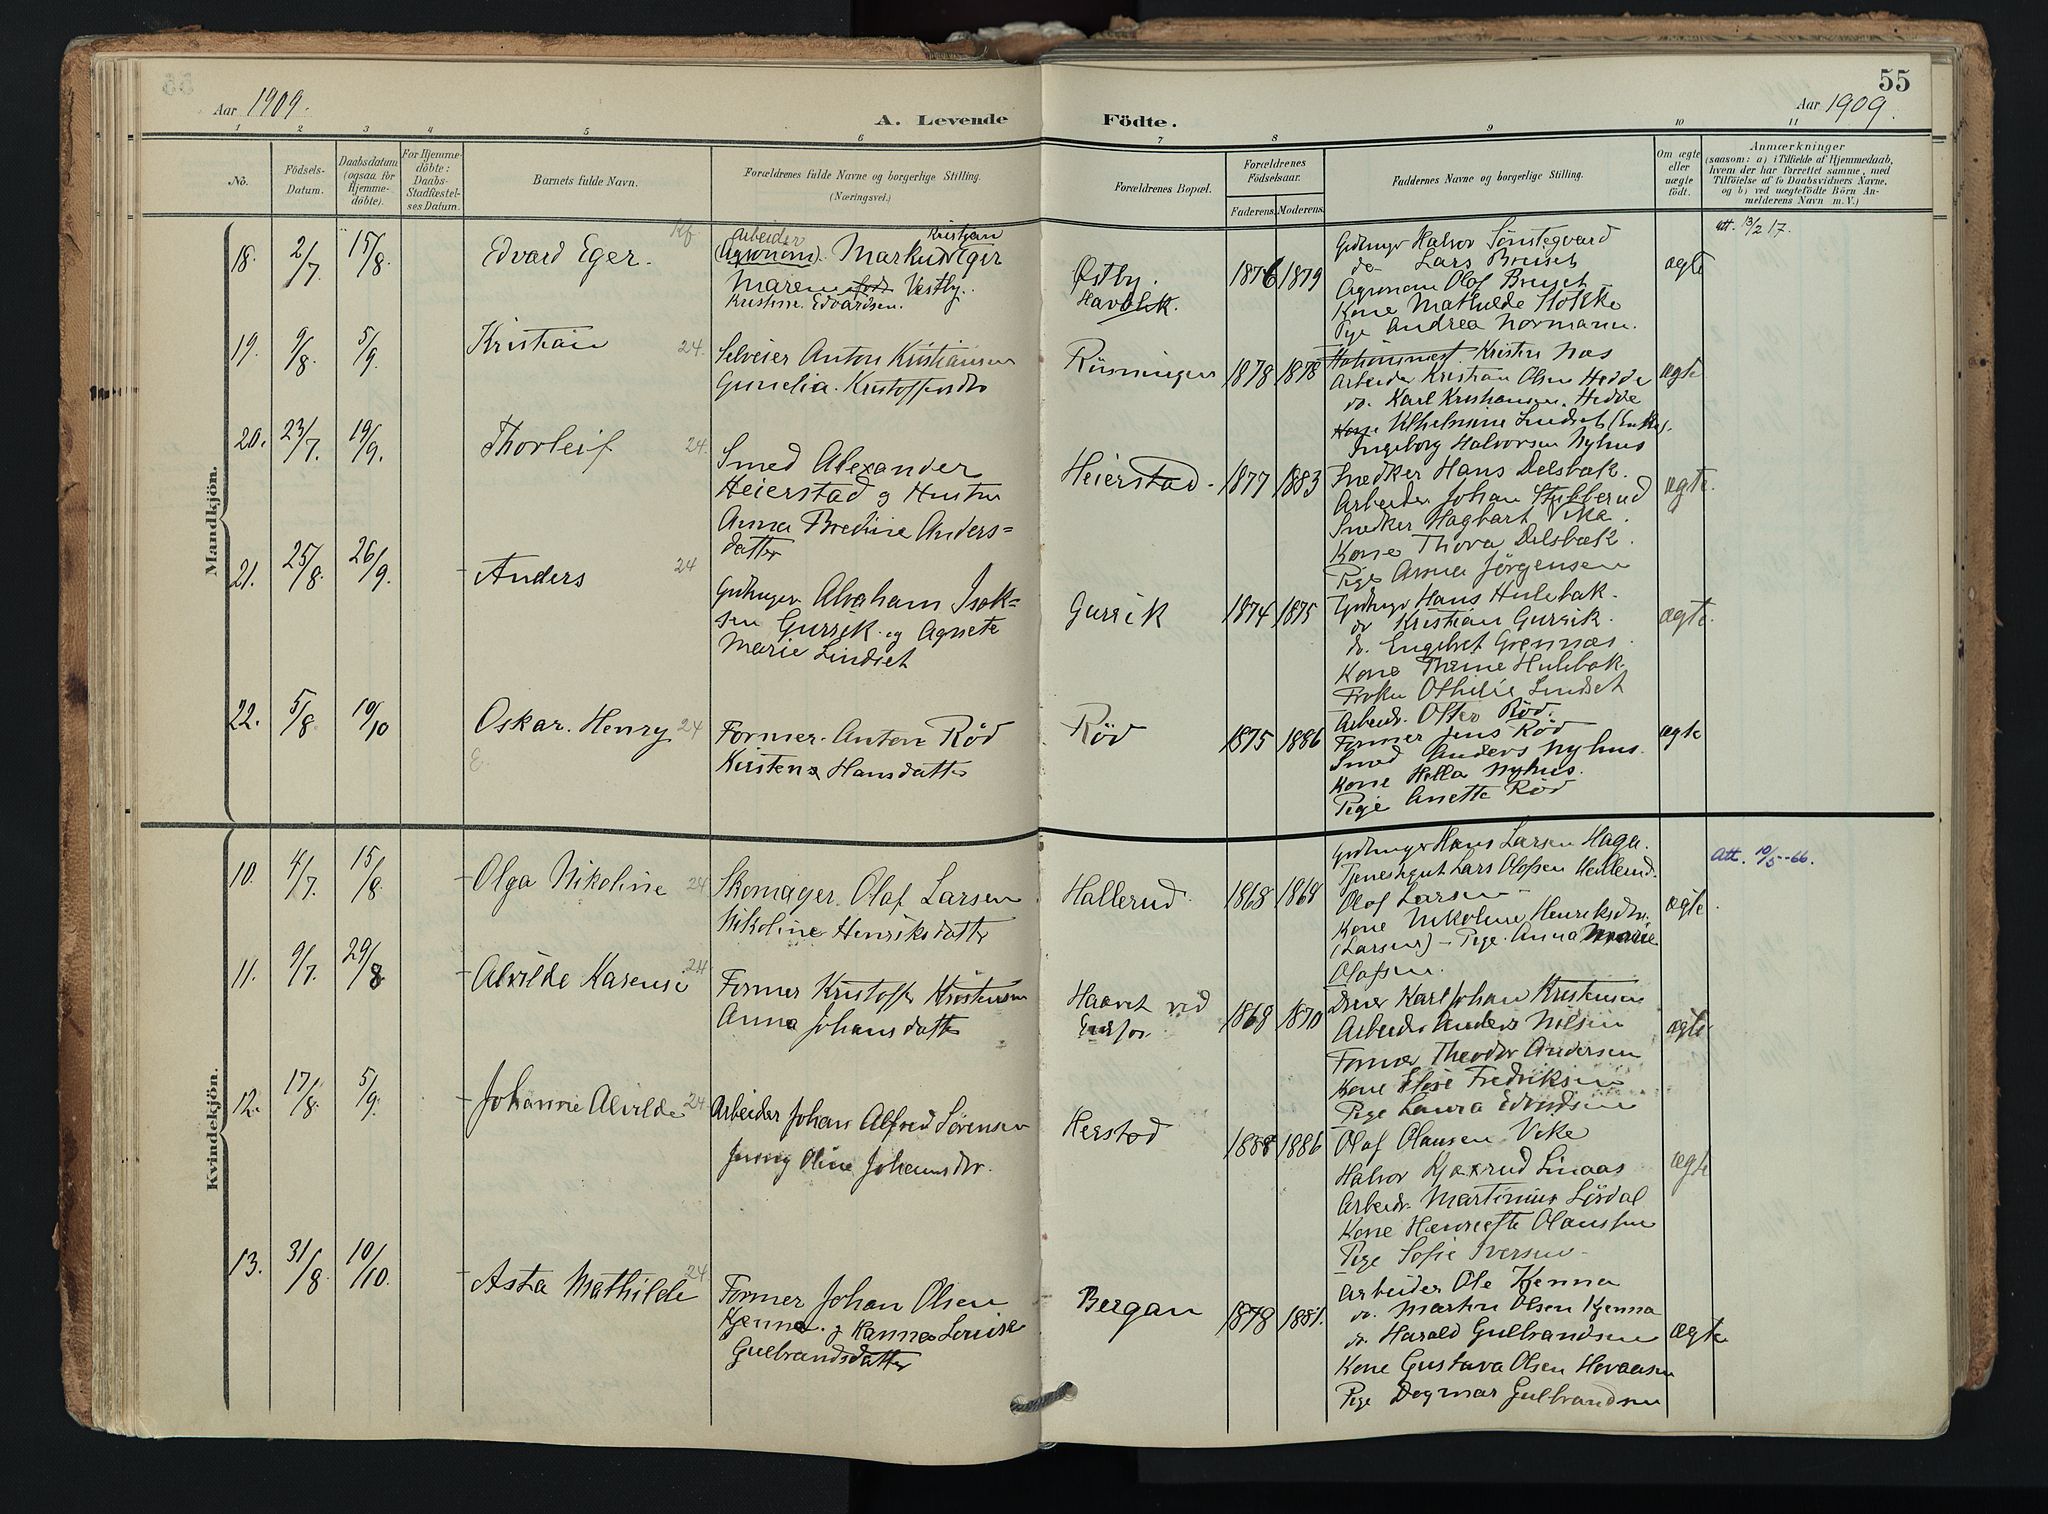 55
Aar 1909.
Aar 1909.
A. Levende Födte.
1 2 3 4 5 6 7 8 9 10 11
No.
Födsels-
Datum.
Daabsdatum
(ogsaa for
Hjemme-
döbte).
For Hjemme-
döbte:
Daabs-
Stadfæstel-
ses Datum.
Barnets fulde Navn.
Forældrenes fulde Navne og borgerlige Stilling.
(Næringsvei.)
Forældrenes Bopæl.
Forældrenes
Födselsaar.
Faderens. Moderens.
Faddernes Navne og borgerlige Stilling.
Om ægte
eller
uægte
født.
Anmærkninger
(saasom: a) i Tilfælde af Hjemmedaab,
hvem der har forrettet samme, med
Tilföielse af to Daabsvidners Navne,
og b) ved uægtefödte Börn An-
melderens Navn m. V.)
Mandkjön.
18. 2/7. 15/8. Edvard Eger. Kf
Arbeider Kristian
(Agronom). Markus Eger
Maren født Vestby.
Kristine. Edvardsen.
Østby.
Havblik.
1876 1879
Gdbruger Halvor Sønstegaard
do Lars Breiset
Agronom Olaf Breiset
Kone Mathilde Holkke
Pige Andrea Normann.
ægte
att. 13/2 17.
19. 9/8. 5/9. Kristian 24.
Selveier Anton Kristiansen
Gunelia Kristoffersdtr
1878 1878
Kristen Næs
Arbeider Kristian Olsen Hedde
do. Karl Kristiansen. Hedde
Kone Vilhelmine Lindset (Enke).
Ingeborg Halvorsen Nyhus
ægte
20. 23/7. 19/9. Thorleif 24.
Smed Alexander
Heierstad og Hustru
Anna Bredine Anders=
datter
Heierstad.
1877 1883
Snedker Hans Delebæk.
Arbeider Johan Stubberud
Snedker Hagbart Vika.
Kone Thora Delebæk.
Pige Anna Jørgensen
ægte.
21. 25/8. 26/9. Anders 24
Gdbruger Abraham Isak=
sen Gursik og Agnete
Marie Lindset
Gursik
1874 1875
Gdbruger Hans Hulebak.
do Kristian Gursik.
do. Engebret Grennæs.
Kone Thrine Hulebak
Frøken Othilie Lindset
ægte.
22. 5/8. 10/10 Oskar. Henry 24
E.
Former. Anton Rød
Kirstene Hansdatter
Rød
1875 1886
Arbeidr. Otter Rød.
Former Jens Rød
Smed Anders Nyhus.
Kone Hella Nyhus.
Pige Anette Rød
ægte
Kvindekjön.
10. 4/7. 15/8 Olga Nikoline 24
Skomager. Olaf Larsen
Nikoline Henriksdatter
Hallerud.
1868 1868
Gdbruger Hans Larsen Hage.
Tjenestegut Lars Olafsen Hellerud.
Olaf Larsen
Kone Nikoline Henriksdtr.
(Larsen) - Pige. Anna Marie
Olafsen.
ægte
Att. 10/5-66.
11. 9/7. 29/8 Alvilde Karense 24
Former Kristoffer Kristensen
Anna Johansdatter
Haavet ved
1868 1870
Karl Johan Kristensen
Arbeider Anders Nilsen
Former Theodor Andersen
Kone Elise Fredriksen
Pige Laura Edvardsen
ægte
12. 17/8. 5/9. Johanne Alvilde 24
Arbeider Johan Alfred Sørensen
Jenny Oline Johannsdtr.
Herstad
1888 1886
Olaf Olausen Veke
Halvor Kjærrud Linaas
Arbeidr. Martinius Lørdal
Kone Henriette Olaussen
Pige Sofie Iversen
ægte
13. 31/8 10/10. Asta Mathilde 24
Former Johan Olsen
Kjenne. og Hanna Lovise
Gulbrandsdatter
Bergan
1878 1881.
Arbeider Ole Kjenna
do. Martin Olsen Kjenna
do. Harald Gulbrandsen
Kone Gustava Olsen Hovaasen
Pige Dagmar Gulbrandsen
ægte